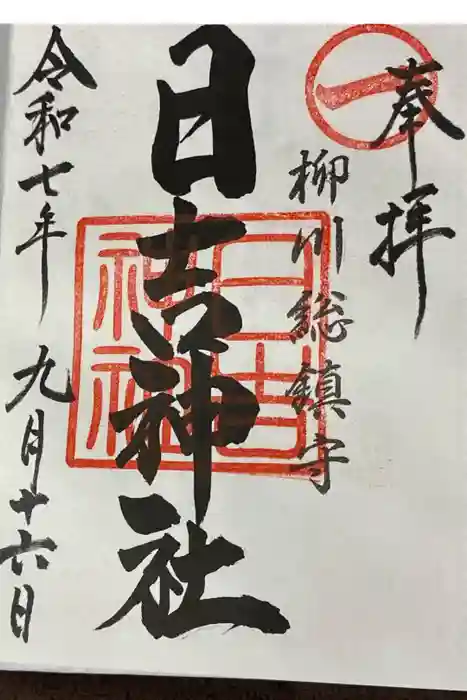 奉拝
一
柳川総鎮守
日吉神社
日吉神社
令和七年 九月十六日